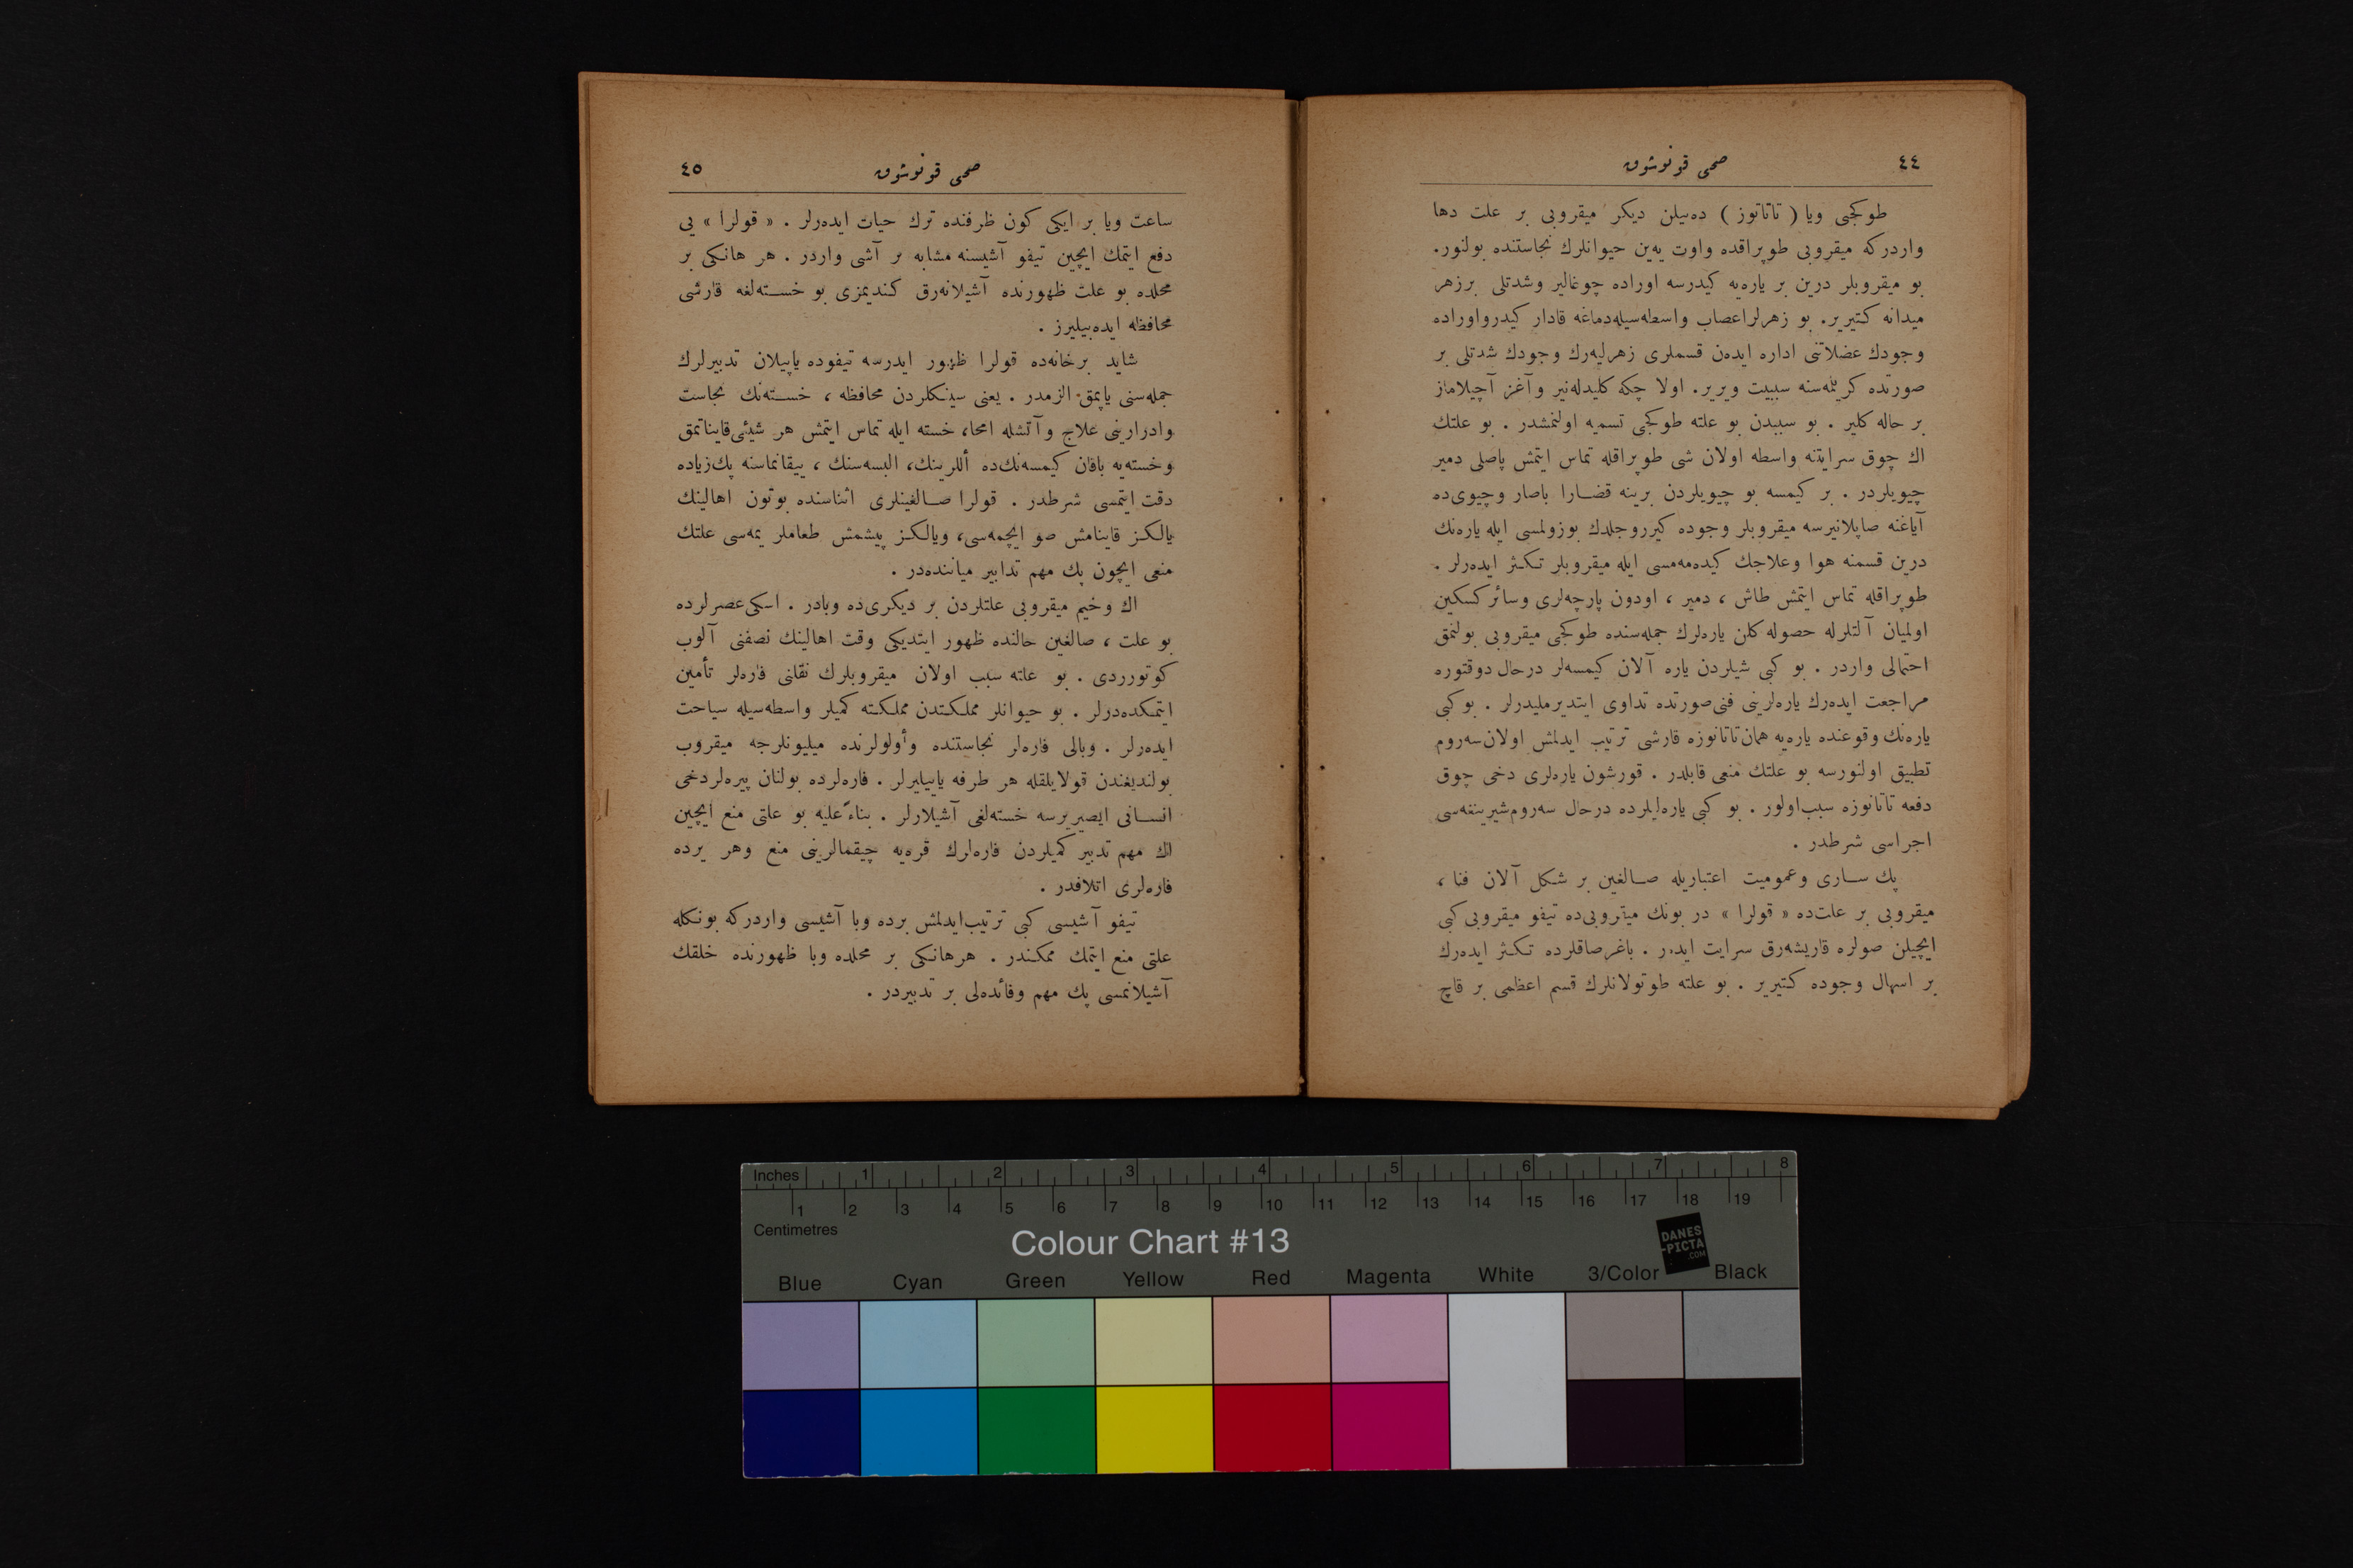 ٤٤
صحی قونوشوق
طوکجی ویا ( تاتانوز ) ده‌نیلن دیکر میقروبی بر علت دها
واردرکه میقروبی طوپراقده واوت یه‌ین حیوانلرك نجاستنده بولنور.
بو میقروبلر درین بر یاره‌یه کیدرسه اوراده چوغالیر وشدتلی برزهر
میدانه کتیریر. بو زهرلراعصاب واسطه‌سیله‌دماغه قادار کیدرواوراده
وجودك عضلاتنی اداره ایده‌ن قسملری زهرلیه‌رك وجودك شدتلی بر
صورتده کریلمه‌سنه سببیت ویریر. اولا چکه کلیدله‌نیر وآغز آچیلاماز
بر حاله کلیر . بو سببدن بو علته طوکجی تسمیه اولنمشدر . بو علتك
اك چوق سرایتنه واسطه اولان شی طوپراقله تماس ایتمش پاصلی دمیر
چیویلردر . بر کیمسه بو چیویلردن برینه قضـارا باصار وچیوی‌ده
آیاغنه صاپلانیرسه میقروبلر وجوده کیرروجلدك بوزولمسی ایله یاره‌نك
درین قسمنه هوا وعلاجك کیده‌مه‌مسی ایله میقروبلر تکـثر ایده‌رلر .
طوپراقله تماس ایتمش طاش ، دمیر ، اودون پارچه‌لری وسائرکسکین
اولمیان آلتلرله حصوله کلن یاره‌لرك جمله‌سنده طوکجی میقروبی بولنمق
احتمالی واردر . بو کبی شیلردن یاره آلان کیمسه‌لر درحال دوقتوره
مراجعت ایده‌رك یاره‌لرینی فنی‌صورتده تداوی ایتدیرملیدرلر . بوکبی
یاره‌نك وقوعنده یاره‌یه همان تاتانوزه قارشی ترتیب ایدلمش اولان‌سه‌روم
تطبیق اولنورسه بو علتك منعی قابلدر . قورشون یاره‌لری دخی چوق
دفعه تاتانوزه سبب‌اولور . بو کبی یاره‌لیلرده درحال سه‌روم‌شیرینغه‌سی
اجراسی شرطدر .
پك سـاری وعمومیت اعتباریله صـالغین بر شکل آلان فنا ،
میقروبی بر علت‌ده « قولرا » در بونك میقروبی‌ده تیفو میقروبی کبی
ایچیلن صولره قاریشه‌رق سرایت ایدر . باغرصاقلرده تکـثر ایده‌رك
بر اسهال وجوده کتیریر . بو علته طوتولانلرك قسم اعظمی بر قاچ
صحی قونوشوق
٤٥
ساعت ویا بر ایکی کون ظرفنده ترك حیات ایده‌رلر . « قولرا » یی
دفع ایتمك ایچین تیفو آشیسنه مشابه بر آشی واردر . هر هانکی بر
محلده بو علت ظهورنده آشیلانه‌رق کندیمزی بو خسـته‌لغه قارشی
محافظه ایده‌بیلیرز .
شاید برخانه‌ده قولرا ظهور ایدرسه تیفوده یاپیلان تدبیرلرك
جمله‌سنی یاپمق الزمدر . یعنی سینـکلردن محافظه ، خسـته‌نك نجاست
وادرارینی علاج وآتشله امحا، خسته ایله تماس ایتمش هر شیئی‌قایناتمق
وخسته‌یه باقان کیمسه‌نك‌ده أللرینك، البسه‌سنك ، ییقانماسنه پك‌زیاده
دقت ایتمسی شرطدر . قولرا صـالغینلری اثناسنده بوتون اهالینك
یالکـز قاینامش صو ایچمه‌سی، ویالکـز پیشمش طعاملر یمه‌سی علتك
منعی ایچون پك مهم تدابیر میاننده‌در .
اك وخیم میقروبی علتلردن بر دیکری‌ده وبادر . اسکی‌عصرلرده
بو علت ، صالغین حالنده ظهور ایتدیکی وقت اهالینك نصفنی آلوب
کوتورردی . بو علته سبب اولان میقروبلرك نقلنی فاره‌لر تأمین
ایتمکده‌درلر . بو حیوانلر مملکـتدن مملکـته کمیلر واسطه‌سیله سیاحت
ایده‌رلر . وبالی فاره‌لر نجاستنده وأولولرنده میلیونلرجه میقروب
بولندیغندن قولایلقله هر طرفه یاییلیرلر . فاره‌لرده بولنان پیره‌لردخی
انسـانی ایصیریرسه خسته‌لغی آشیلارلر . بناءً علیه بو علتی منع ایچین
اك مهم تدبیر کمیلردن فاره‌لرك قره‌یه چیقمالرینی منع وهر یرده
فاره‌لری اتلافدر .
تیفو آشیسی کبی ترتیب‌ایدلمش برده وبا آشیسی واردرکه بونکله
علتی منع ایتمك ممکـندر . هرهانکی بر محلده وبا ظهورنده خلقك
آشیلانمسی پك مهم وفائده‌لی بر تدبیردر .
Inches 1 2 3 4 5 6 7 8
1 2 3 4 5 6 7 8 9 10 11 12 13 14 15 16 17 18 19
Centimetres
Colour Chart #13
DANES
-PICTA
.COM
Blue Cyan Green Yellow Red Magenta White 3/Color Black